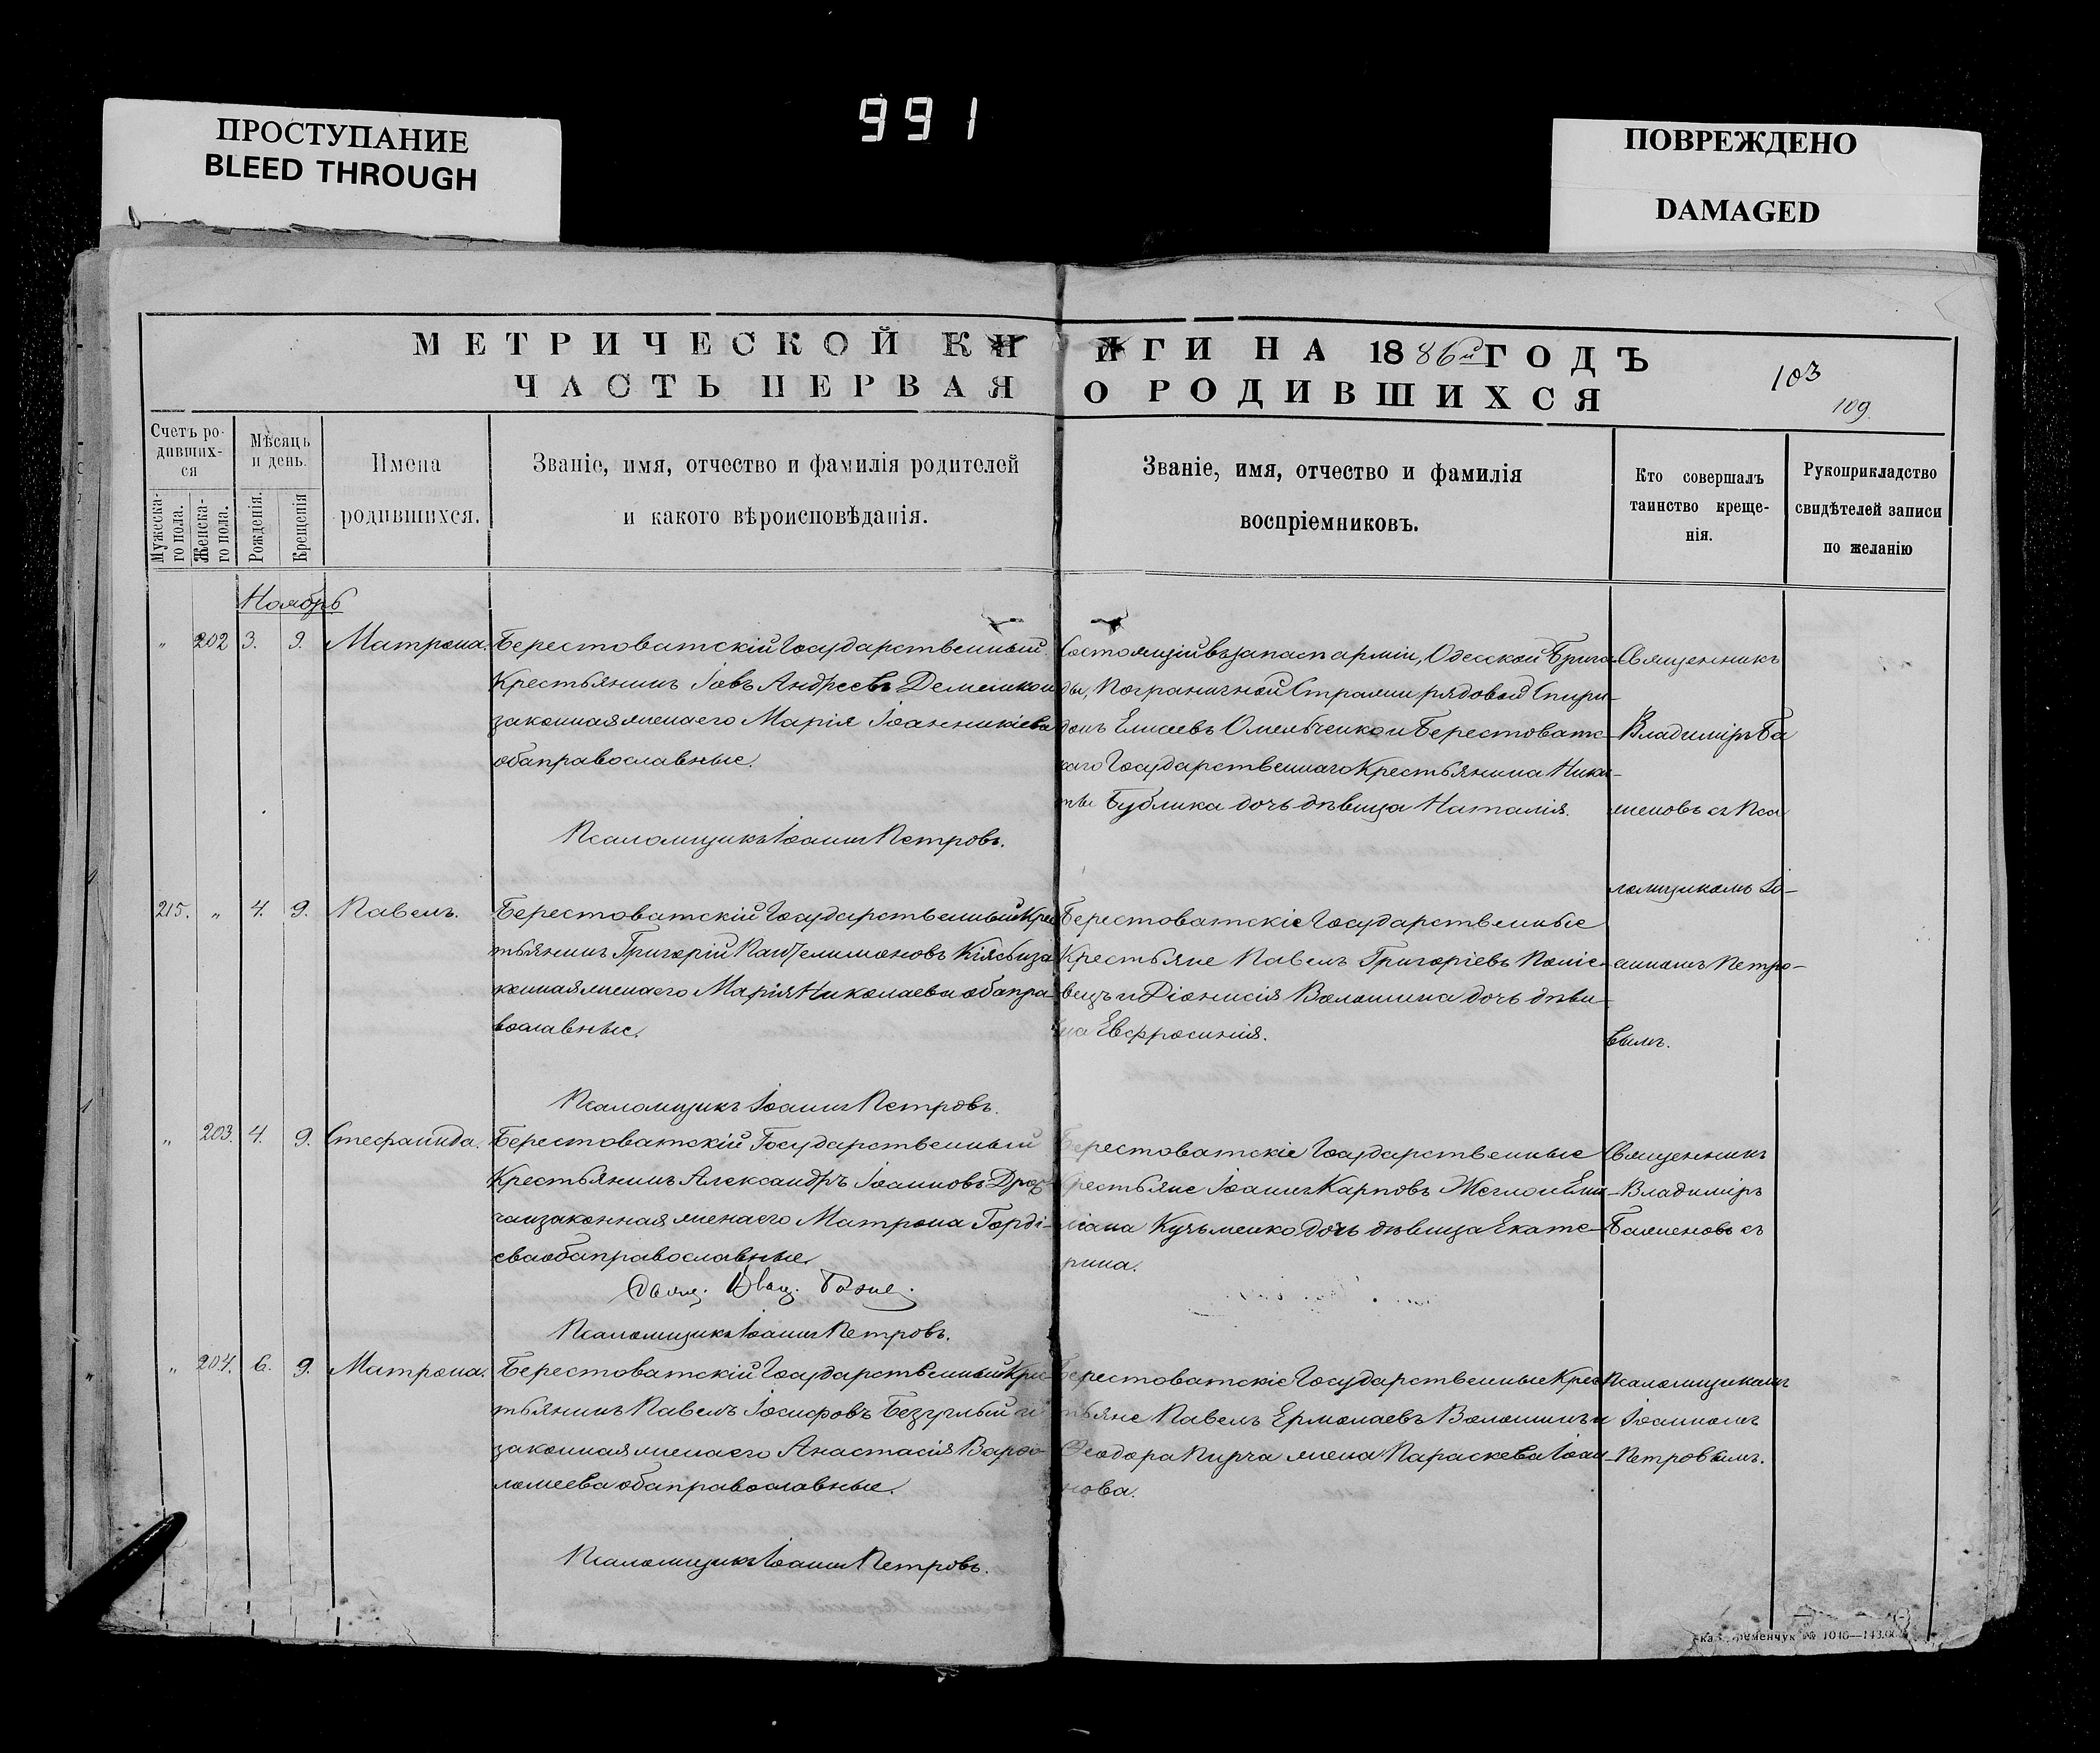 ПРОСТУПАНИЕ
BLEED THROUGH
991
ПОВРЕЖДЕНО
DAMAGED
МЕТРИЧЕСКОЙ КНИГИ НА 1886й ГОДЪ
ЧАСТЬ ПЕРВАЯ О РОДИВШИХСЯ
103
109.
Счетъ ро-
дивших-
ся
Мужеска-
го пола.
Женска-
го пола.
Мѣсяцъ
и день.
Рожденія.
Крещенія
Имена
родившихся.
Званіе, имя, отчество и фамилія родителей
и какого вѣроисповѣданія.
Званіе, имя, отчество и фамилія
воспріемниковъ.
Кто совершалъ
таинство креще-
нія.
Рукоприкладство
свидѣтелей записи
по желанію
Ноябрь
" 202 3. 9. Матрона.
Берестоватскій Государственный
Крестьянинъ Іовъ Андреевъ Демешко и
законная жена его Марія Іоанникіева
оба православные.
Псаломщикъ Іоаннъ Петровъ.
Состоящій въ запасѣ арміи, Одесской Брига-
ды, Пограничной Стражи рядовой Спири-
донъ Елисеевъ Омельченко и Берестоватс-
каго Государственнаго Крестьянина Ники-
ты Бублика дочь дѣвица Наталія.
Священникъ
Владиміръ Ба
женовъ съ Пса
ломщикомъ Іо-
анномъ Петро-
вымъ.
215. " 4. 9. Павелъ.
Берестоватскій Государственный Крес
тьянинъ Григорій Пантелимоновъ и за
конная жена его Марія Николаева оба пра-
вославные.
Псаломщикъ Іоаннъ Петровъ.
Берестоватскіе Государственные
Крестьяне Павелъ Григоріевъ
вецъ и Діонисія Волошина дочь дѣви-
ца Евфросинія.
" 203. 4. 9. Стефанида.
Берестоватскій Государственный
Крестьянинъ Александръ Іоанновъ
законная жена его Матрона Горді-
ева оба православные.
Псаломщикъ Іоаннъ Петровъ.
Берестоватскіе Государственные
Крестьяне Іоаннъ Карповъ Жегло и Еми-
ліана Кузьменко дочь дѣвица Екате-
рина.
Священникъ
Владиміръ
Баженовъ съ
Псаломщикомъ
Іоанномъ
Петровымъ.
" 204. 6. 9. Матрона.
Берестоватскій Государственный Крес-
тьянинъ Павелъ Іосифовъ Безуглый и
законная жена его Анастасія Варфо-
ломеева оба православные.
Псаломщикъ Іоаннъ Петровъ.
Берестоватскіе Государственные Крес
тьяне Павелъ Ермолаевъ Волошинъ и
Феодора Пирча жена Параскева Іоан-
нова.